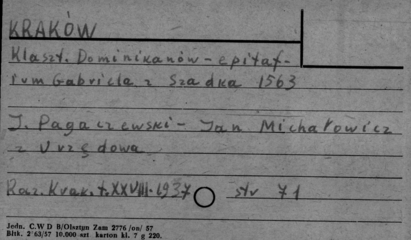 KRAKÓW
Klaszt. Dominikanów - epitaf-
ium Gabriela z Szadka 1563
J. Pagaczewski - Jan Michałowicz
z Urzędowa
Roz. Krak. t. XXVIII. 1937 str 71
Jedn. C.W D B/Olsztyn Zam 2776/on/ 57
Bltk. 2'63/57 10.000 szt. karton kl. 7 g 220.